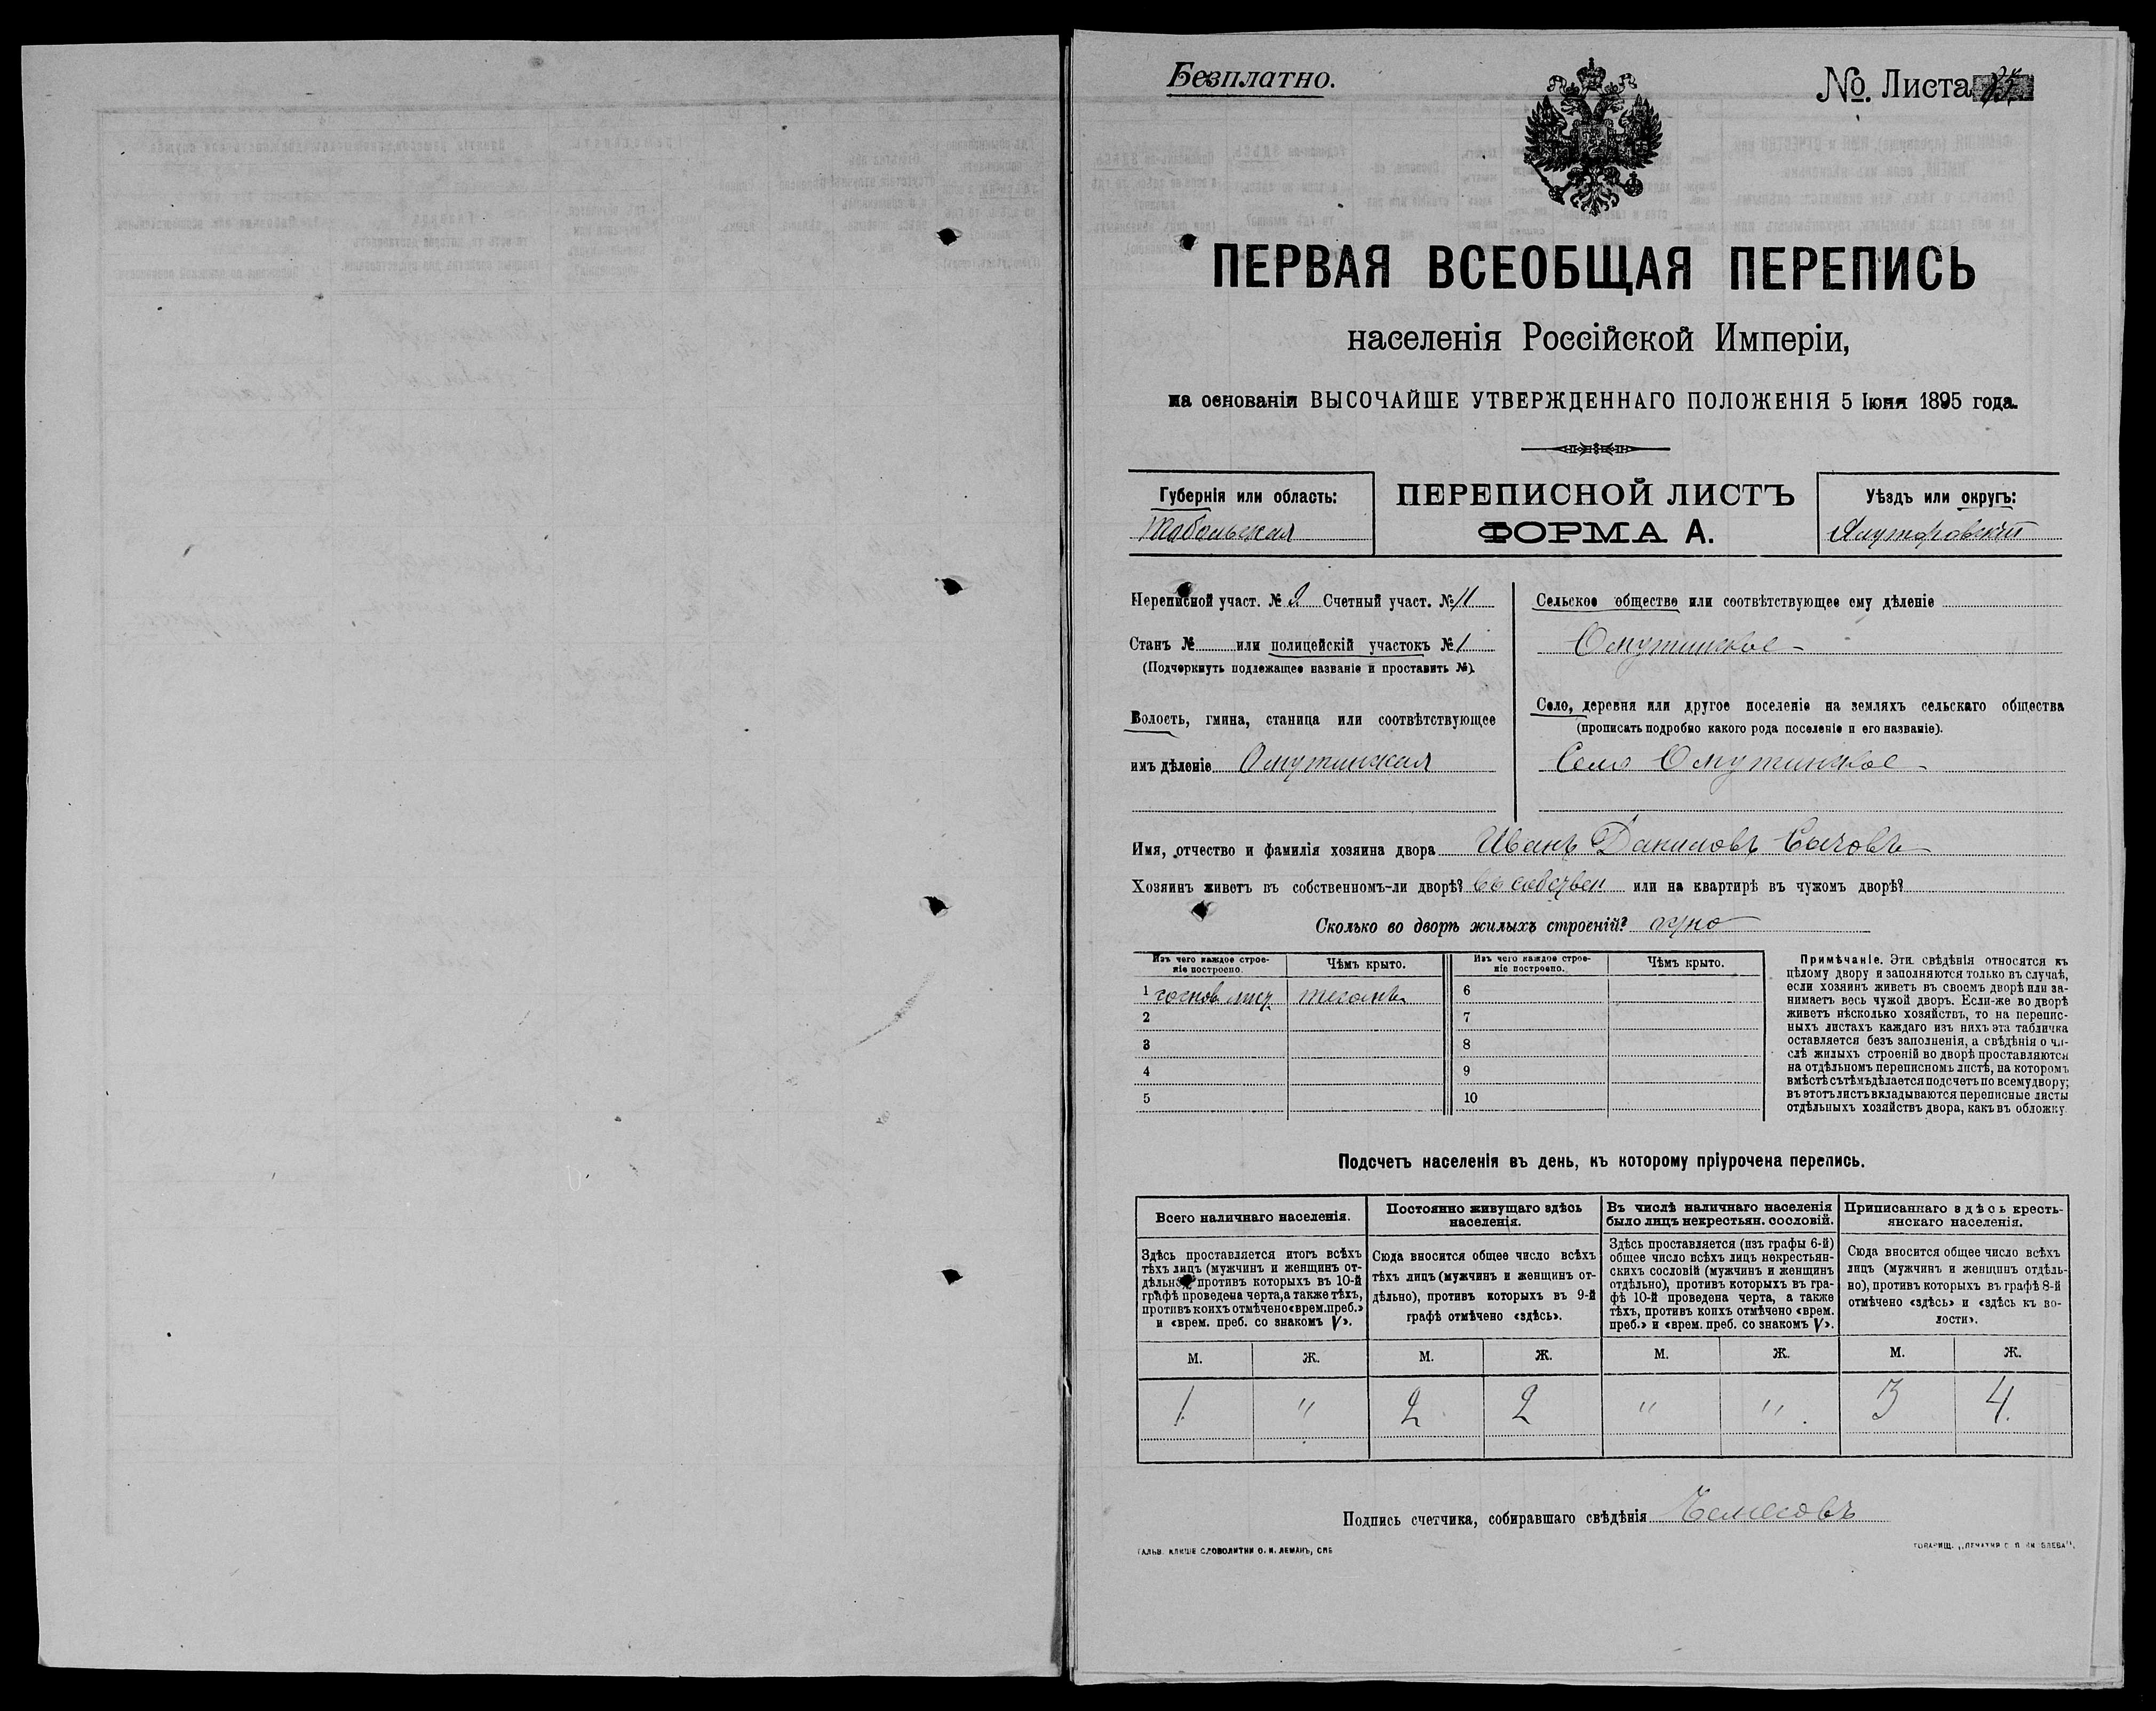 Безплатно.
№. Листа 85.
ПЕРВАЯ ВСЕОБЩАЯ ПЕРЕПИСЬ
населенія Россійской Имперіи,
на основаніи ВЫСОЧАЙШЕ УТВЕРЖДЕННАГО ПОЛОЖЕНІЯ 5 Іюня 1895 года.
Губернія или область:
Тобольская
ПЕРЕПИСНОЙ ЛИСТЪ
ФОРМА А.
Уѣздъ или округъ:
Ялуторовскій
Переписной участ. № 2 Счетный участ. № 11
Станъ № или полицейскій участокъ № 1
(Подчеркнуть подлежащее названіе и проставить №).
Волость, гмина, станица или соотвѣтствующее
имъ дѣленіе Омутинская
Сельское общество или соотвѣтствующее ему дѣленіе
Омутинское
Село, деревня или другое поселеніе на земляхъ сельскаго общества
(прописать подробно какого рода поселеніе и его названіе).
Село Омутинское
Имя, отчество и фамилія хозяина двора Иванъ Даниловъ Сычовъ
Хозяинъ живетъ въ собственномъ-ли дворѣ? въ собствен или на квартирѣ въ чужомъ дворѣ?
Сколько во дворѣ жилыхъ строеній? одно
Изъ чего каждое строе-
ніе построено.
Чѣмъ крыто.
Изъ чего каждое строе-
ніе построено.
Чѣмъ крыто.
1 тесомъ 6
2 7
3 8
4 9
5 10
Примѣчаніе. Эти свѣдѣнія относятся къ
цѣлому двору и заполняются только въ случаѣ,
если хозяинъ живетъ въ своемъ дворѣ или за-
нимаетъ весь чужой дворъ. Если-же во дворѣ
живетъ нѣсколько хозяйствъ, то на перепис-
ныхъ листахъ каждаго изъ нихъ эта табличка
оставляется безъ заполненія, а свѣдѣнія о чи-
слѣ жилыхъ строеній во дворѣ проставляются
на отдѣльномъ переписномъ листѣ, на которомъ
вмѣстѣ съ тѣмъ дѣлается подсчетъ по всему двору;
въ этотъ листъ вкладываются переписные листы
отдѣльныхъ хозяйствъ двора, какъ въ обложку.
Подсчетъ населенія въ день, къ которому пріурочена перепись.
Всего наличнаго населенія.
Здѣсь проставляется итогъ всѣхъ
тѣхъ лицъ (мужчинъ и женщинъ от-
дѣльно) противъ которыхъ въ 10-й
графѣ проведена черта, а также тѣхъ,
противъ коихъ отмѣчено «врем. преб.»
и «врем. преб. со знакомъ V».
Постоянно живущаго здѣсь
населенія.
Сюда вносится общее число всѣхъ
тѣхъ лицъ (мужчинъ и женщинъ от-
дѣльно), противъ которыхъ въ 9-й
графѣ отмѣчено «здѣсь».
Въ числѣ наличнаго населенія
было лицъ некрестьян. сословій.
Здѣсь проставляется (изъ графы 6-й)
общее число всѣхъ лицъ некрестьян-
скихъ сословій (мужчинъ и женщинъ
отдѣльно), противъ которыхъ въ гра-
фѣ 10-й проведена черта, а также
тѣхъ, противъ коихъ отмѣчено «врем.
преб.» и «врем. преб. со знакомъ V».
Приписаннаго здѣсь кресть-
янскаго населенія.
Сюда вносится общее число всѣхъ
лицъ (мужчинъ и женщинъ отдѣль-
но), противъ которыхъ въ графѣ 8-й
отмѣчено «здѣсь» и «здѣсь къ во-
лости».
М. Ж. М. Ж. М. Ж. М. Ж.
1 " 2 2 " " 3 4
Подпись счетчика, собиравшаго свѣдѣнія
ГАЛЬВ. КЛИШЕ СЛОВОЛИТНИ О. И. ЛЕМАНЪ, СПБ